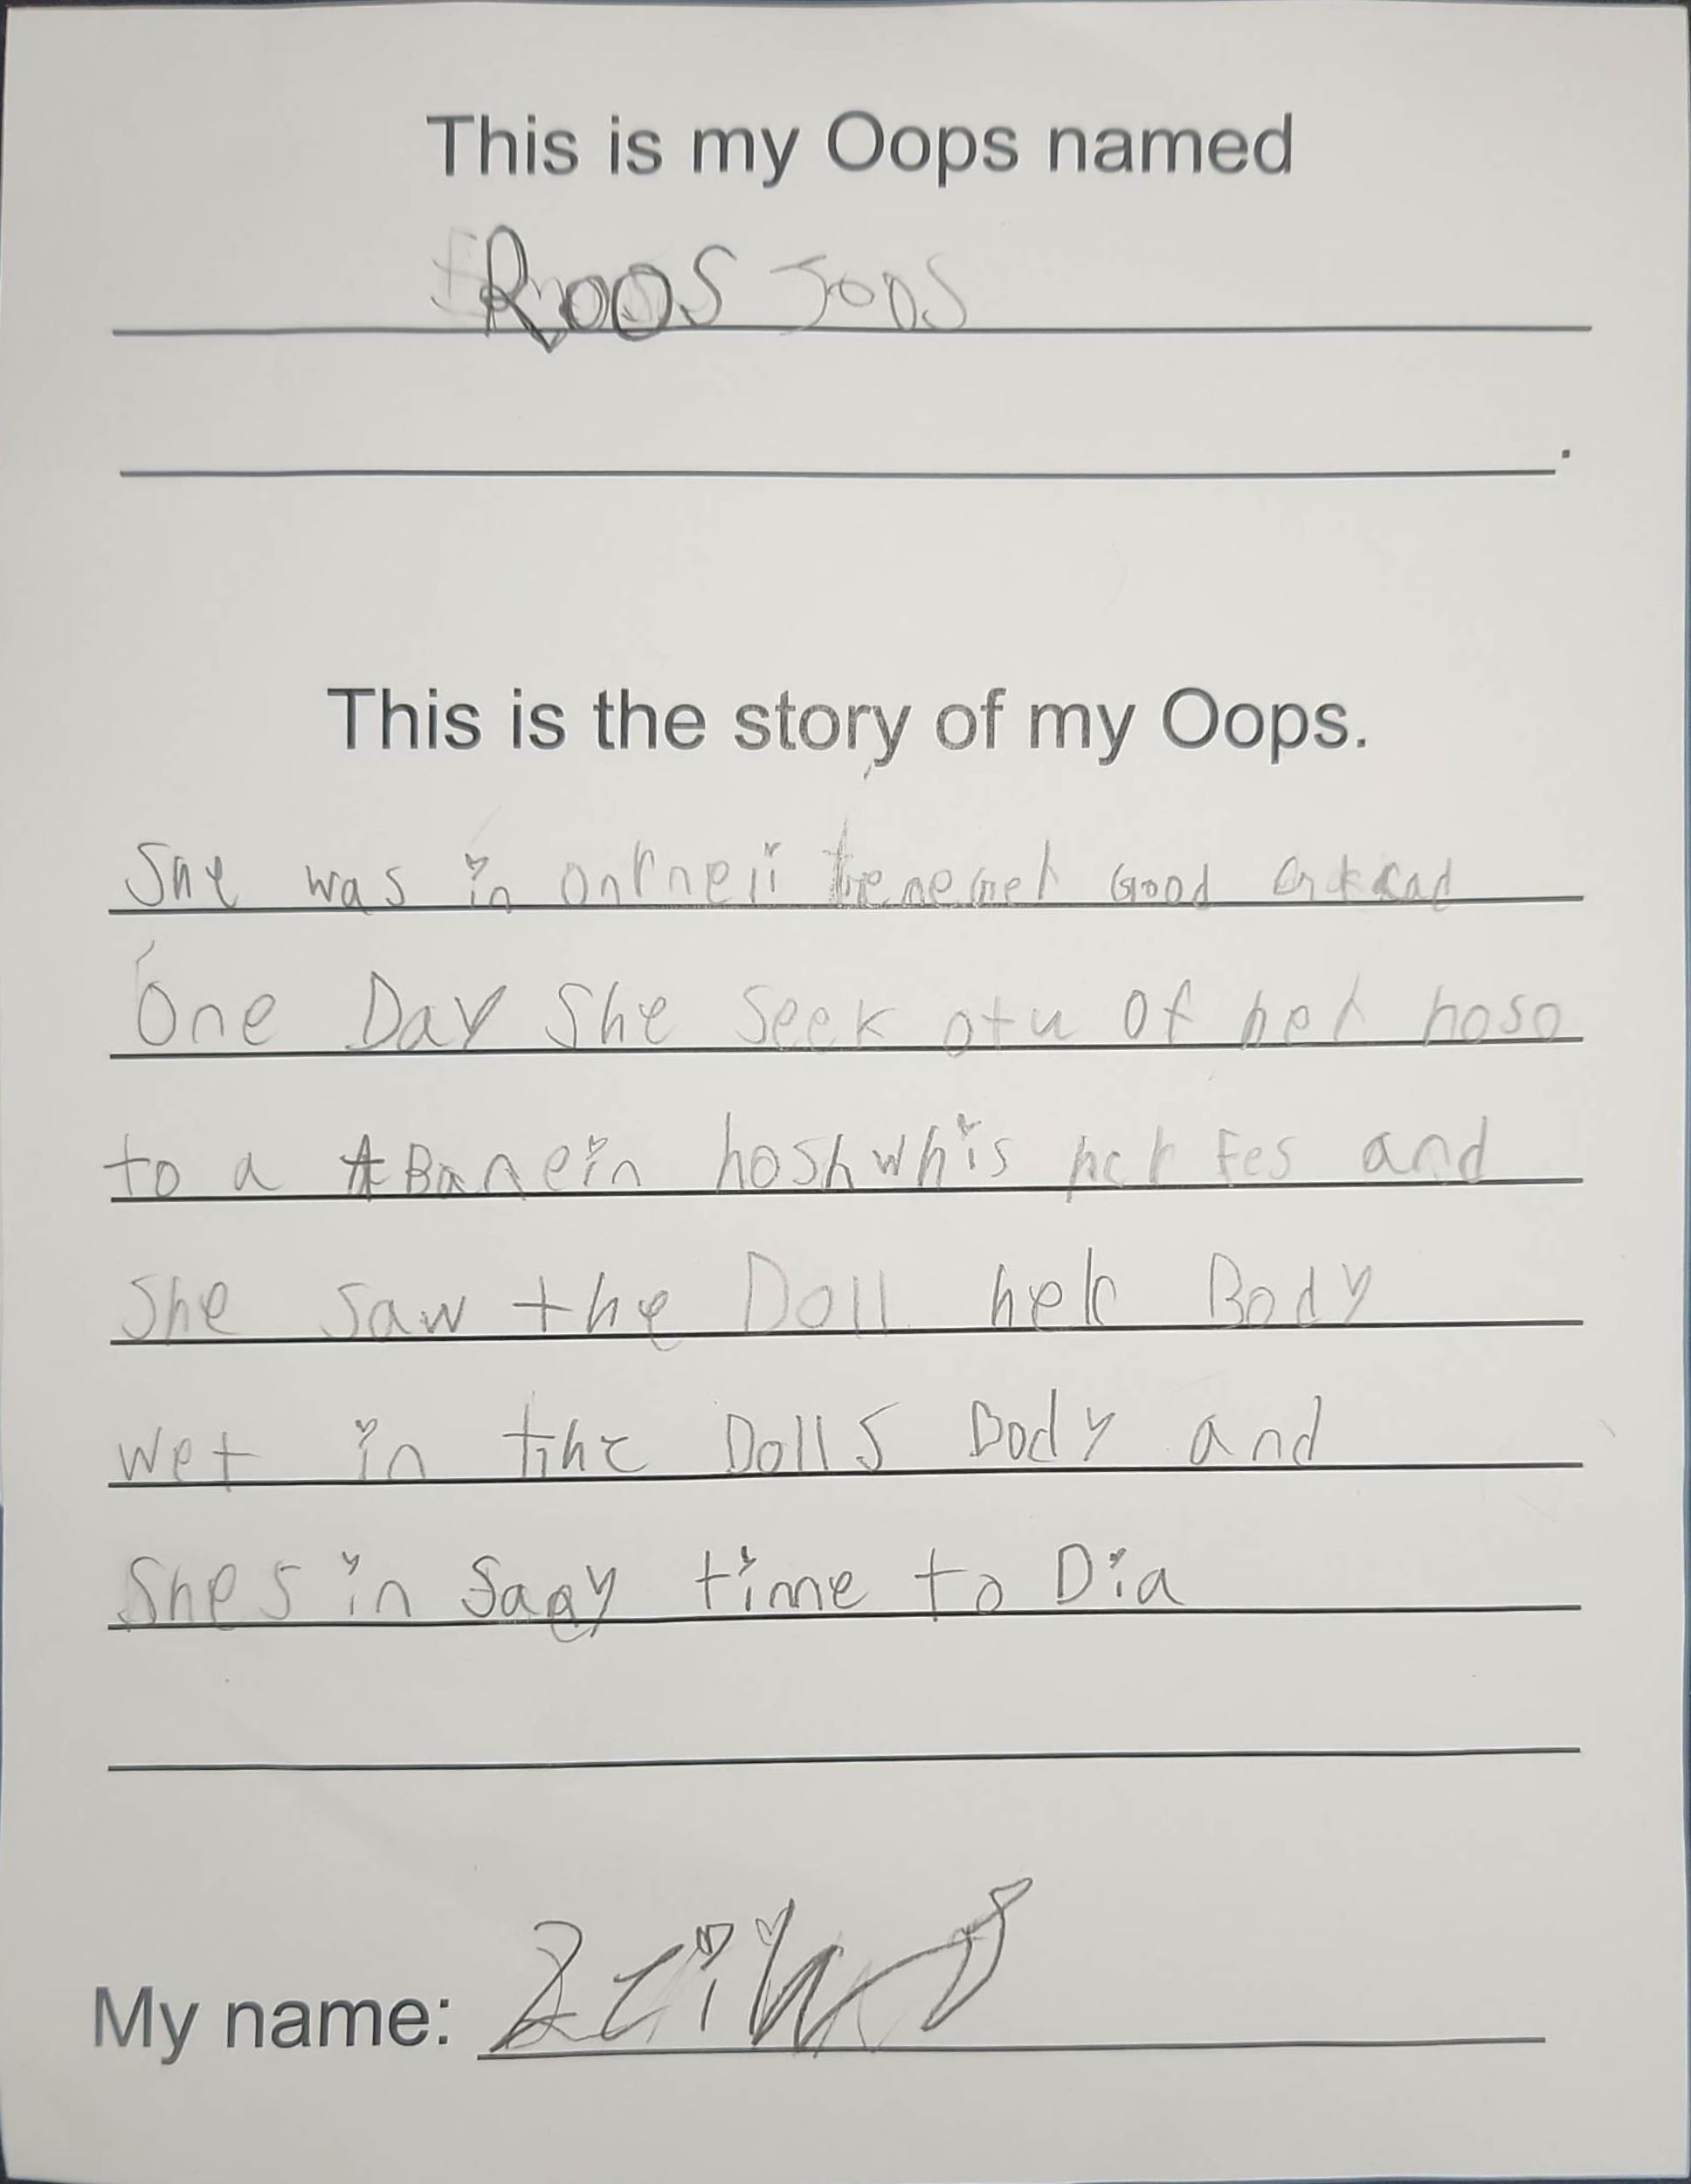 This is my Oops named
ROOS JONS
.
This is the story of my Oops.
She was in Good
One Day She Seek otu Of her hoso
to a hosh whis her Fes and
She Saw the Doll her Body
wet in the Dolls Body and
Shes in Saey time to Dia
My name: